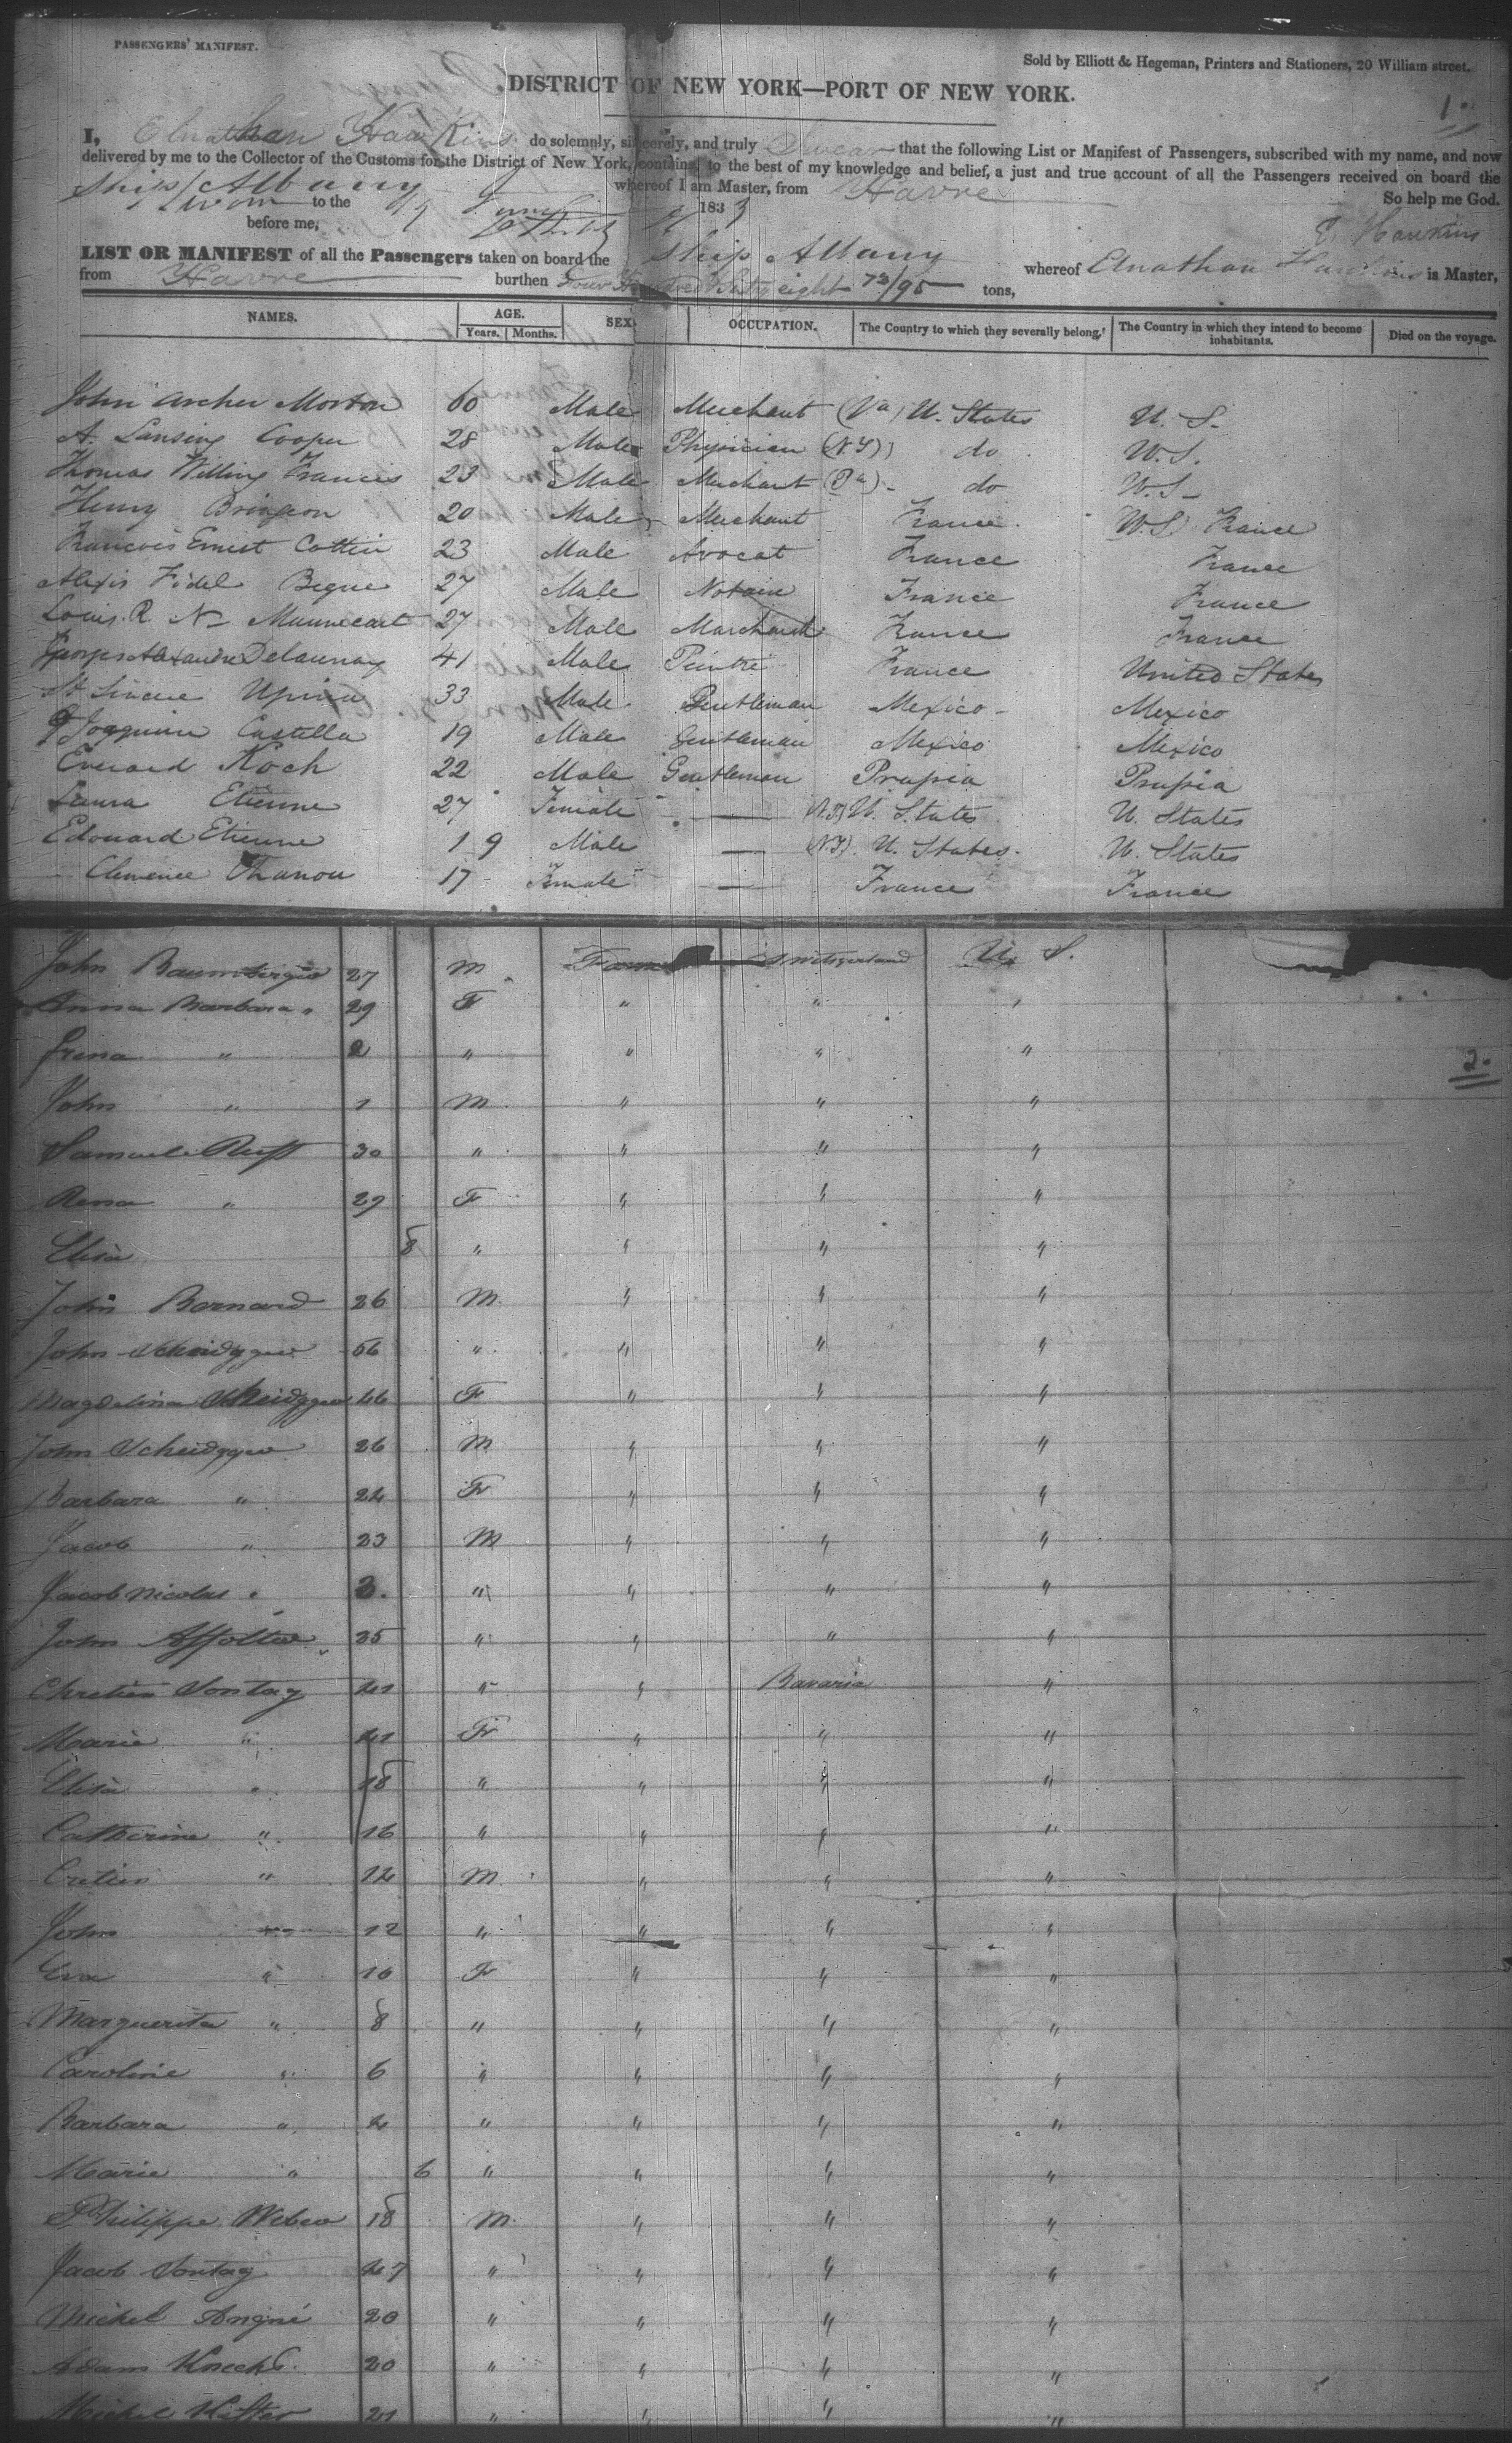 PASSENGERS' MANIFEST.
Sold by Elliott & Hegeman, Printers and Stationers, 20 William street.
DISTRICT OF NEW YORK—PORT OF NEW YORK.
1.
I, Elnathan Hawkins do solemnly, sincerely, and truly Swear that the following List or Manifest of Passengers, subscribed with my name, and now
delivered by me to the Collector of the Customs for the District of New York, contains, to the best of my knowledge and belief, a just and true account of all the Passengers received on board the
Ship Albany whereof I am Master, from Havre So help me God.
Sworn to the 1833
before me, E Hawkins
LIST OR MANIFEST of all the Passengers taken on board the Ship Albany whereof Elnathan Hawkins is Master,
from Havre burthen Four Hundred Sixty eight 73/95 tons,
NAMES. AGE. SEX. OCCUPATION. The Country to which they severally belong. The Country in which they intend to become inhabitants. Died on the voyage.
Years. Months.
John Archer Morton 60 Male Merchant (Va) U. States U. S.
A. Lansing Cooper 28 Male Physician (NY) do U.S.
Thomas Willing Francis 23 Male Merchant (Pa) do U.S
Henry 20 Male Merchant France (U.S) France
Francois Ernest Cottin 23 Male Avocat France France
Alexis Fidel Begue 27 Male Notaire France France
Louis R. N 27 Male Marchand France France
Georges Alexandre Delaunay 41 Male Peintre France United States
33 Male Gentleman Mexico Mexico
Joaquin Castella 19 Male Gentleman Mexico Mexico
Everard Koch 22 Male Gentleman Prussia Prussia
Laura Etienne 27 Female — U. States U. States
Edouard Etienne 1 9 Male — U. States U. States
Clemence Thanou 17 Female — France France
John 27 M Farmer Switzerland U. S.
Anna Barbara " 29 F " " "
2.
" 2 " " " "
John " 1 M " " "
Samuel Ruff 30 " " " "
Rena " 29 F " " "
Elisa 8 " " " "
John Bernard 26 M " " "
John 56 " " " "
Magdelina 46 F " " "
John 26 M " " "
Barbara " 24 F " " "
Jacob " 23 M " " "
Jacob Nicolas " 3 " " " "
John Affolter 35 " " " "
Chretien Sontag 41 " " Bavaria "
Marie " 41 F " " "
Elisa " 18 " " " "
Catherine " 16 " " " "
Cretien " 14 M " " "
John " 12 " " " "
Eva " 10 F " " "
Marguerita " 8 " " " "
Caroline " 6 " " " "
Barbara " 4 " " " "
Marie " 6 " " " "
Philippe Weber 18 M " " "
Jacob Sontag 47 " " " "
Michel 20 " " " "
Adam Knecht 20 " " " "
Michel 21 " " " "